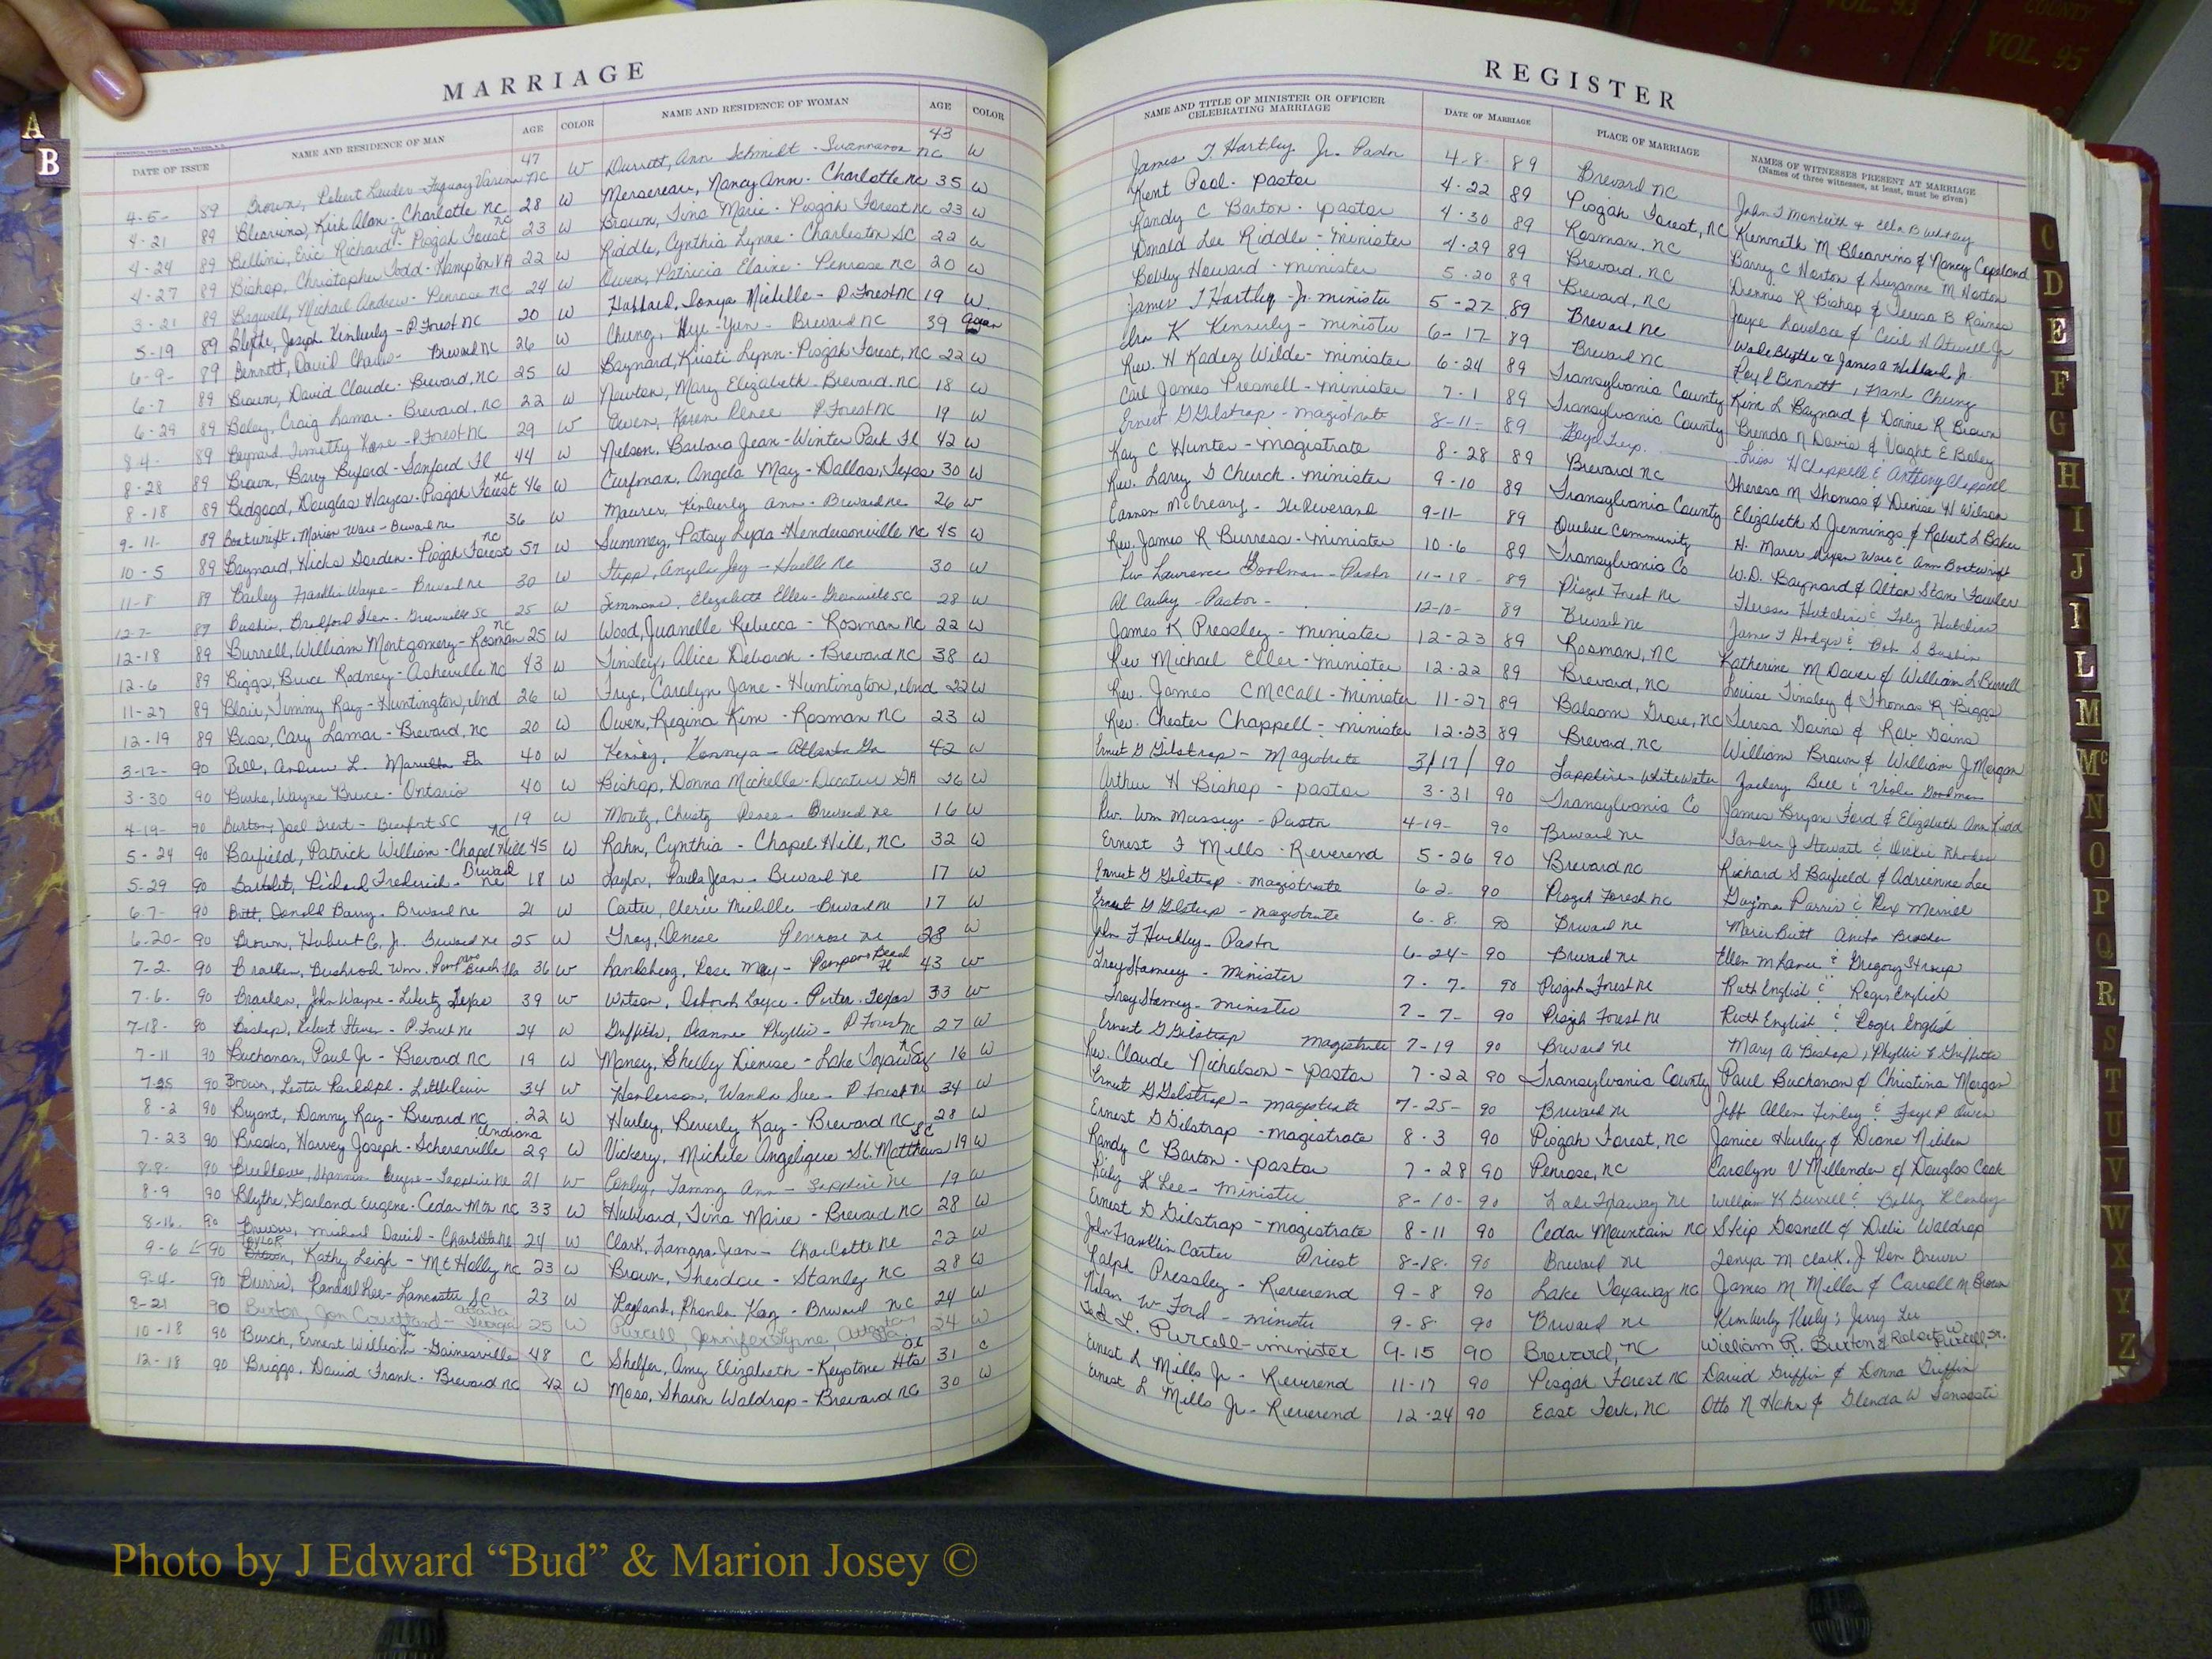 MARRIAGE
DATE OF ISSUE NAME AND RESIDENCE OF MAN AGE COLOR NAME AND RESIDENCE OF WOMAN AGE COLOR
4-5- 89 Brown, Robert Lauder - Fuquay Varina NC 47 W Durrett, Ann Schmidt - NC 43 W
4-21 89 Blearvins, Kirk Alan - Charlotte NC 28 W Mersereau, Nancy Ann - Charlotte NC 35 W
4-24 89 Bellini, Eric Richard Jr - Pisgah Forest NC 23 W Brown, Tina Marie - Pisgah Forest NC 23 W
4-27 89 Bishop, Christopher Todd - Hampton VA 22 W Riddle, Cynthia Lynne - Charleston SC 22 W
3-21 89 Bagwell, Michael Andrew - Penrose NC 24 W Owen, Patricia Elaine - Penrose NC 20 W
5-19 89 Blythe, Joseph Kimberly - P. Forest NC 20 W Hubbard, Tonya Michelle - P. Forest NC 19 W
6-9- 89 Bennett, David - Brevard NC 26 W Chung, Hye-Yun - Brevard NC 39
6-7 89 Brown, David Claude - Brevard, NC 25 W Baynard, Kristi Lynn - Pisgah Forest, NC 22 W
6-29 89 Boley, Craig Lamar - Brevard, NC 22 W Newton, Mary Elizabeth - Brevard, NC 18 W
8-4- 89 Baynard, Timothy - P. Forest NC 29 W Owen, Karen Renee P. Forest NC 19 W
8-28 89 Brown, Barry Buford - Sanford Fl 44 W Nelson, Barbara Jean - Winter Park Fl 42 W
8-18 89 Bedgood, Douglas Hayes - Pisgah Forest NC 46 W Curfman, Angela May - Dallas, Texas 30 W
9-11- 89 Boatwright, Marion Ware - Brevard NC 36 W Maurer, Kimberly Ann - Brevard NC 26 W
10-5 89 Baynard, Hicks Dorden - Pisgah Forest NC 57 W Summey, Patsy Lyda - Hendersonville NC 45 W
11-8 89 Bailey Franklin Wayne - Brevard NC 30 W Stepp, Angela Joy - NC 30 W
12-7- 89 Bradford - Greenville SC 25 W Simmons, Elizabeth Ellen - Greenville SC 28 W
12-18 89 Burrell, William Montgomery - Rosman NC 25 W Wood, Juanelle Rebecca - Rosman NC 22 W
12-6 89 Biggs, Bruce Rodney - Asheville NC 43 W Tinsley, Alice Deborah - Brevard NC 38 W
11-27 89 Blair, Jimmy Ray - Huntington, Ind 26 W Frye, Carolyn Jane - Huntington, Ind 22 W
12-19 89 Bass, Cary Lamar - Brevard, NC 20 W Owen, Regina Kim - Rosman NC 23 W
3-12- 90 Bell, Andrew L. Marietta Ga 40 W - Atlanta Ga 42 W
3-30 90 Burke, Wayne Bruce - Ontario 40 W Bishop, Donna Michelle - Decatur GA 26 W
4-19- 90 Burton, Joel Brent - Beaufort SC 19 W Moutz, Christy Renee - Brevard NC 16 W
5-24 90 Barfield, Patrick William - Chapel Hill NC 45 W Rahn, Cynthia - Chapel Hill, NC 32 W
5-29 90 Bartolet, Richard Frederick - Brevard NC 18 W Taylor, Paula Jean - Brevard NC 17 W
6-7- 90 Britt, Donald Barry - Brevard NC 21 W Carter, Cherie Michelle - Brevard NC 17 W
6-20- 90 Brown, Hubert C, Jr. Brevard NC 25 W Gray, Denese Penrose NC 28 W
7-2- 90 Bracken, Bushrod Wm. Pompano Beach Fla 36 W Landsberg, Rose May - Pompano Beach Fl 43 W
7-6- 90 Bracken, John Wayne - Liberty Texas 39 W Watson, Deborah Loyce - Porter, Texas 33 W
7-18- 90 Bishop, Robert Steven - P. Forest NC 24 W Griffith, Deanne Phyllis - P Forest NC 27 W
7-11 90 Buchanan, Paul Jr - Brevard NC 19 W Maney, Shelley Denise - Lake Toxaway NC 16 W
7-25 90 Brown, Lester Randolph - 34 W Henderson, Wanda Sue - P Forest NC 34 W
8-2 90 Bryant, Danny Ray - Brevard NC 22 W Hurley, Beverly Kay - Brevard NC 28 W
7-23 90 Brooks, Harvey Joseph - Schererville Indiana 29 W Vickery, Michele Angelique - St. Matthews SC 19 W
8-8- 90 Breedlove, Shannon - Sapphire NC 21 W Conley, Tammy Ann - Sapphire NC 19 W
8-9 90 Blythe, Garland Eugene - Cedar Mtn NC 33 W Hubbard, Tina Marie - Brevard NC 28 W
8-16- 90 Brewer, Michael David - Charlotte NC 24 W Clark, Tamara Jean - Charlotte NC 22 W
9-6 90 Taylor Brown, Kathy Leigh - Mt Holly NC 23 W Brown, Theodore - Stanley NC 28 W
9-4- 90 Burris, Randall Lee - Lancaster SC 23 W Ragland, Rhonda Kay - Brevard NC 24 W
8-21 90 Burton, Jon Courtland - Atlanta Georgia 25 W Purcell, Jennifer Lynne Atlanta Ga 24 W
10-18 90 Burch, Ernest William - Gainesville 48 C Shelfer, Amy Elizabeth - Keystone Hts 31 C
12-18 90 Briggs, David Frank - Brevard NC 42 W Moss, Sharon Waldrop - Brevard NC 30 W
REGISTER
NAME AND TITLE OF MINISTER OR OFFICER CELEBRATING MARRIAGE DATE OF MARRIAGE PLACE OF MARRIAGE NAMES OF WITNESSES PRESENT AT MARRIAGE
(Names of three witnesses, at least, must be given)
James T. Hartley Jr. Pastor 4-8- 89 Brevard NC John T Monteith & Ella B Whitley
Kent Pool - pastor 4-22 89 Pisgah Forest, NC Kenneth M Blearvins & Nancy Copeland
Randy C Barton - pastor 4-30 89 Rosman, NC Barry C Horton & Suzanne M Horton
Donald Lee Riddle - minister 4-29 89 Brevard, NC Dennis R Bishop & Teresa B Raines
Bobby Howard - minister 5-20 89 Brevard, NC Joyce Loveless & Cecil H Atwell Jr
James T Hartley - Jr. minister 5-27- 89 Brevard NC Wade Blythe & James A Hubbard Jr.
Ira K Kennerly - minister 6-17- 89 Brevard NC Bennett, Frank Chung
Rev. H Kadez Wilde - minister 6-24 89 Transylvania County Kim L Baynard & Donnie R Brown
Carl James Presnell - minister 7-1 89 Transylvania County Brenda N Davis & Vaught E Boley
Ernest G Gilstrap - magistrate 8-11- 89 Boyd Twp. Lisa H Chappell & Anthony Chappell
Kay C Hunter - magistrate 8-28 89 Brevard NC Theresa M Thomas & Denise H Wilson
Rev. Larry D Church - minister 9-10 89 Transylvania County Elizabeth S Jennings & Robert L Baker
Cannon McCreary - The Reverend 9-11- 89 Quebec Community H. Ware & Ann Boatwright
Rev. James R Burress - minister 10-6 89 Transylvania Co W.D. Baynard & Alton Stane Fowler
Rev Lawrence Goodman - Pastor 11-18- 89 Pisgah Forest NC Theresa Hutchins & Toby Hutchins
Al Causby - Pastor - 12-10- 89 Brevard NC James T Hodges & Bob S
James K Pressley - minister 12-23 89 Rosman, NC Katherine M Dover & William L Burrell
Rev Michael Eller - minister 12-22 89 Brevard, NC Louise Tinsley & Thomas R Biggs
Rev. James C McCall - minister 11-27 89 Balsam Grove, NC Teresa Goins & Rob Goins
Rev. Chester Chappell - minister 12-23 89 Brevard, NC William Brown & William J Morgan
Ernest G Gilstrap - Magistrate 3/17/ 90 Sapphire - Whitewater Zachary Bell & Viola Goodman
Arthur H Bishop - pastor 3-31 90 Transylvania Co James Bryan Ford & Elizabeth Ann Kidd
Rev. Wm Massey - Pastor 4-19- 90 Brevard NC Sandra J Stewart & Dickie Rhodes
Ernest F Mills - Reverend 5-26 90 Brevard NC Richard S Barfield & Adrienne Lee
Ernest G Gilstrap - magistrate 6-2- 90 Pisgah Forest NC Parris & Rex Merrill
Ernest G Gilstrap - magistrate 6-8- 90 Brevard NC Marie Britt Anita
John F Huckley - Pastor 6-24- 90 Brevard NC Ellen M & Gregory Stroup
Troy Stamey - Minister 7-7- 90 Pisgah Forest NC Ruth English & Roger English
Troy Stamey - minister 7-7- 90 Pisgah Forest NC Ruth English & Roger English
Ernest G Gilstrap magistrate 7-19 90 Brevard NC Mary A Bishop, Phyllis F Griffith
Rev. Claude Nicholson - pastor 7-22 90 Transylvania County Paul Buchanan & Christina Morgan
Ernest G Gilstrap - magistrate 7-25- 90 Brevard NC Jeff Allen Finley & Faye P Owen
Ernest G Gilstrap - magistrate 8-3 90 Pisgah Forest, NC Janice Hurley & Diane Nelden
Randy C Barton - pastor 7-28 90 Penrose, NC Carolyn V Millender & Douglas Cook
Riley K Lee - Minister 8-10- 90 Lake Toxaway NC William K Burrell & Bobby R Conley
Ernest G Gilstrap - magistrate 8-11 90 Cedar Mountain NC Skip Gosnell & Delie Waldrop
John Franklin Carter Priest 8-18- 90 Brevard NC Tonya M Clark, J Ron Brewer
Ralph Pressley - Reverend 9-8 90 Lake Toxaway NC James M Miller & Carroll M Brown
Nolan W Ford - minister 9-8- 90 Brevard NC Kimberly Neely, Jerry Lee
Ted L. Purcell - minister 9-15 90 Brevard, NC William R. Burton & Robert W Purcell, Sr.
Ernest L Mills Jr - Reverend 11-17 90 Pisgah Forest NC David Griffin & Donna Griffin
Ernest L Mills Jr - Reverend 12-24 90 East Fork, NC Otto N Hahn & Glenda W Sansosti
A
B
C
D
E
F
G
H
I
J
L
M
Mc
N
O
P
Q
R
S
T
U
V
W
X
Y
Z
VOL. 93
COUNTY
VOL. 95
Photo by J Edward “Bud” & Marion Josey ©